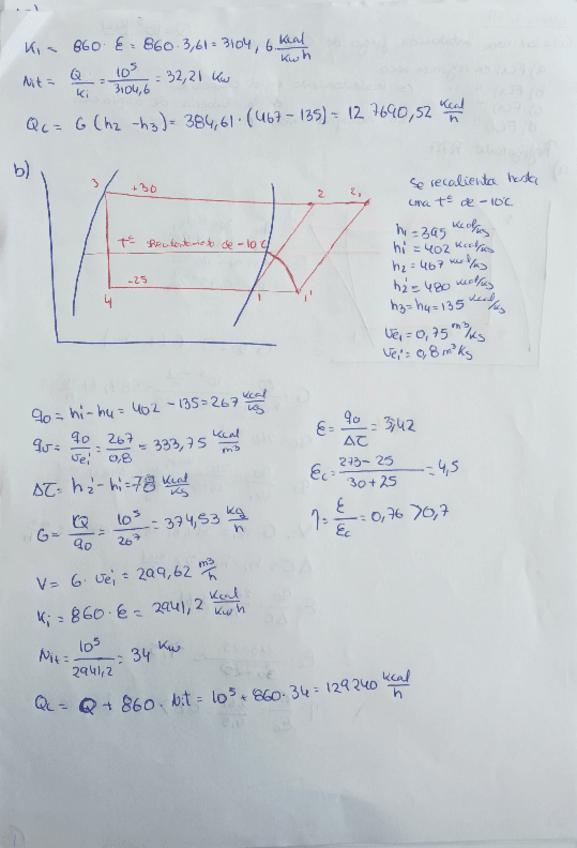 Ki = 860 · ε = 860 · 3,61 = 3104,6 kcal/kwh
Nit = Q/Ki = 10⁵/3104,6 = 32,21 kw
Qc = G (h2 - h3) = 384,61 · (467 - 135) = 127690,52 kcal/h
b)
3 +30 2 2,
Tª Recalentamiento de -10ºC
-25
4 1 1'
Se recalienta hasta
una Tª de -10ºC
h1 = 395 kcal/kg
h1' = 402 kcal/kg
h2 = 467 kcal/kg
h2' = 480 kcal/kg
h3 = h4 = 135 kcal/kg
ve1 = 0,75 m³/kg
ve1' = 0,8 m³/kg
q0 = h1' - h4 = 402 - 135 = 267 kcal/kg
qv = q0/ve1' = 267/0,8 = 333,75 kcal/m³
Δτ = h2' - h1' = 78 kcal/kg
G = Q/q0 = 10⁵/267 = 374,53 kg/h
V = G · ve1' = 299,62 m³/h
Ki = 860 · ε = 2941,2 kcal/kwh
Nit = 10⁵/2941,2 = 34 kw
Qc = Q + 860 · Nit = 10⁵ + 860 · 34 = 129240 kcal/h
ε = q0/Δτ = 3,42
εc = 273 - 25/30 + 25 = 4,5
η = ε/εc = 0,76 > 0,7